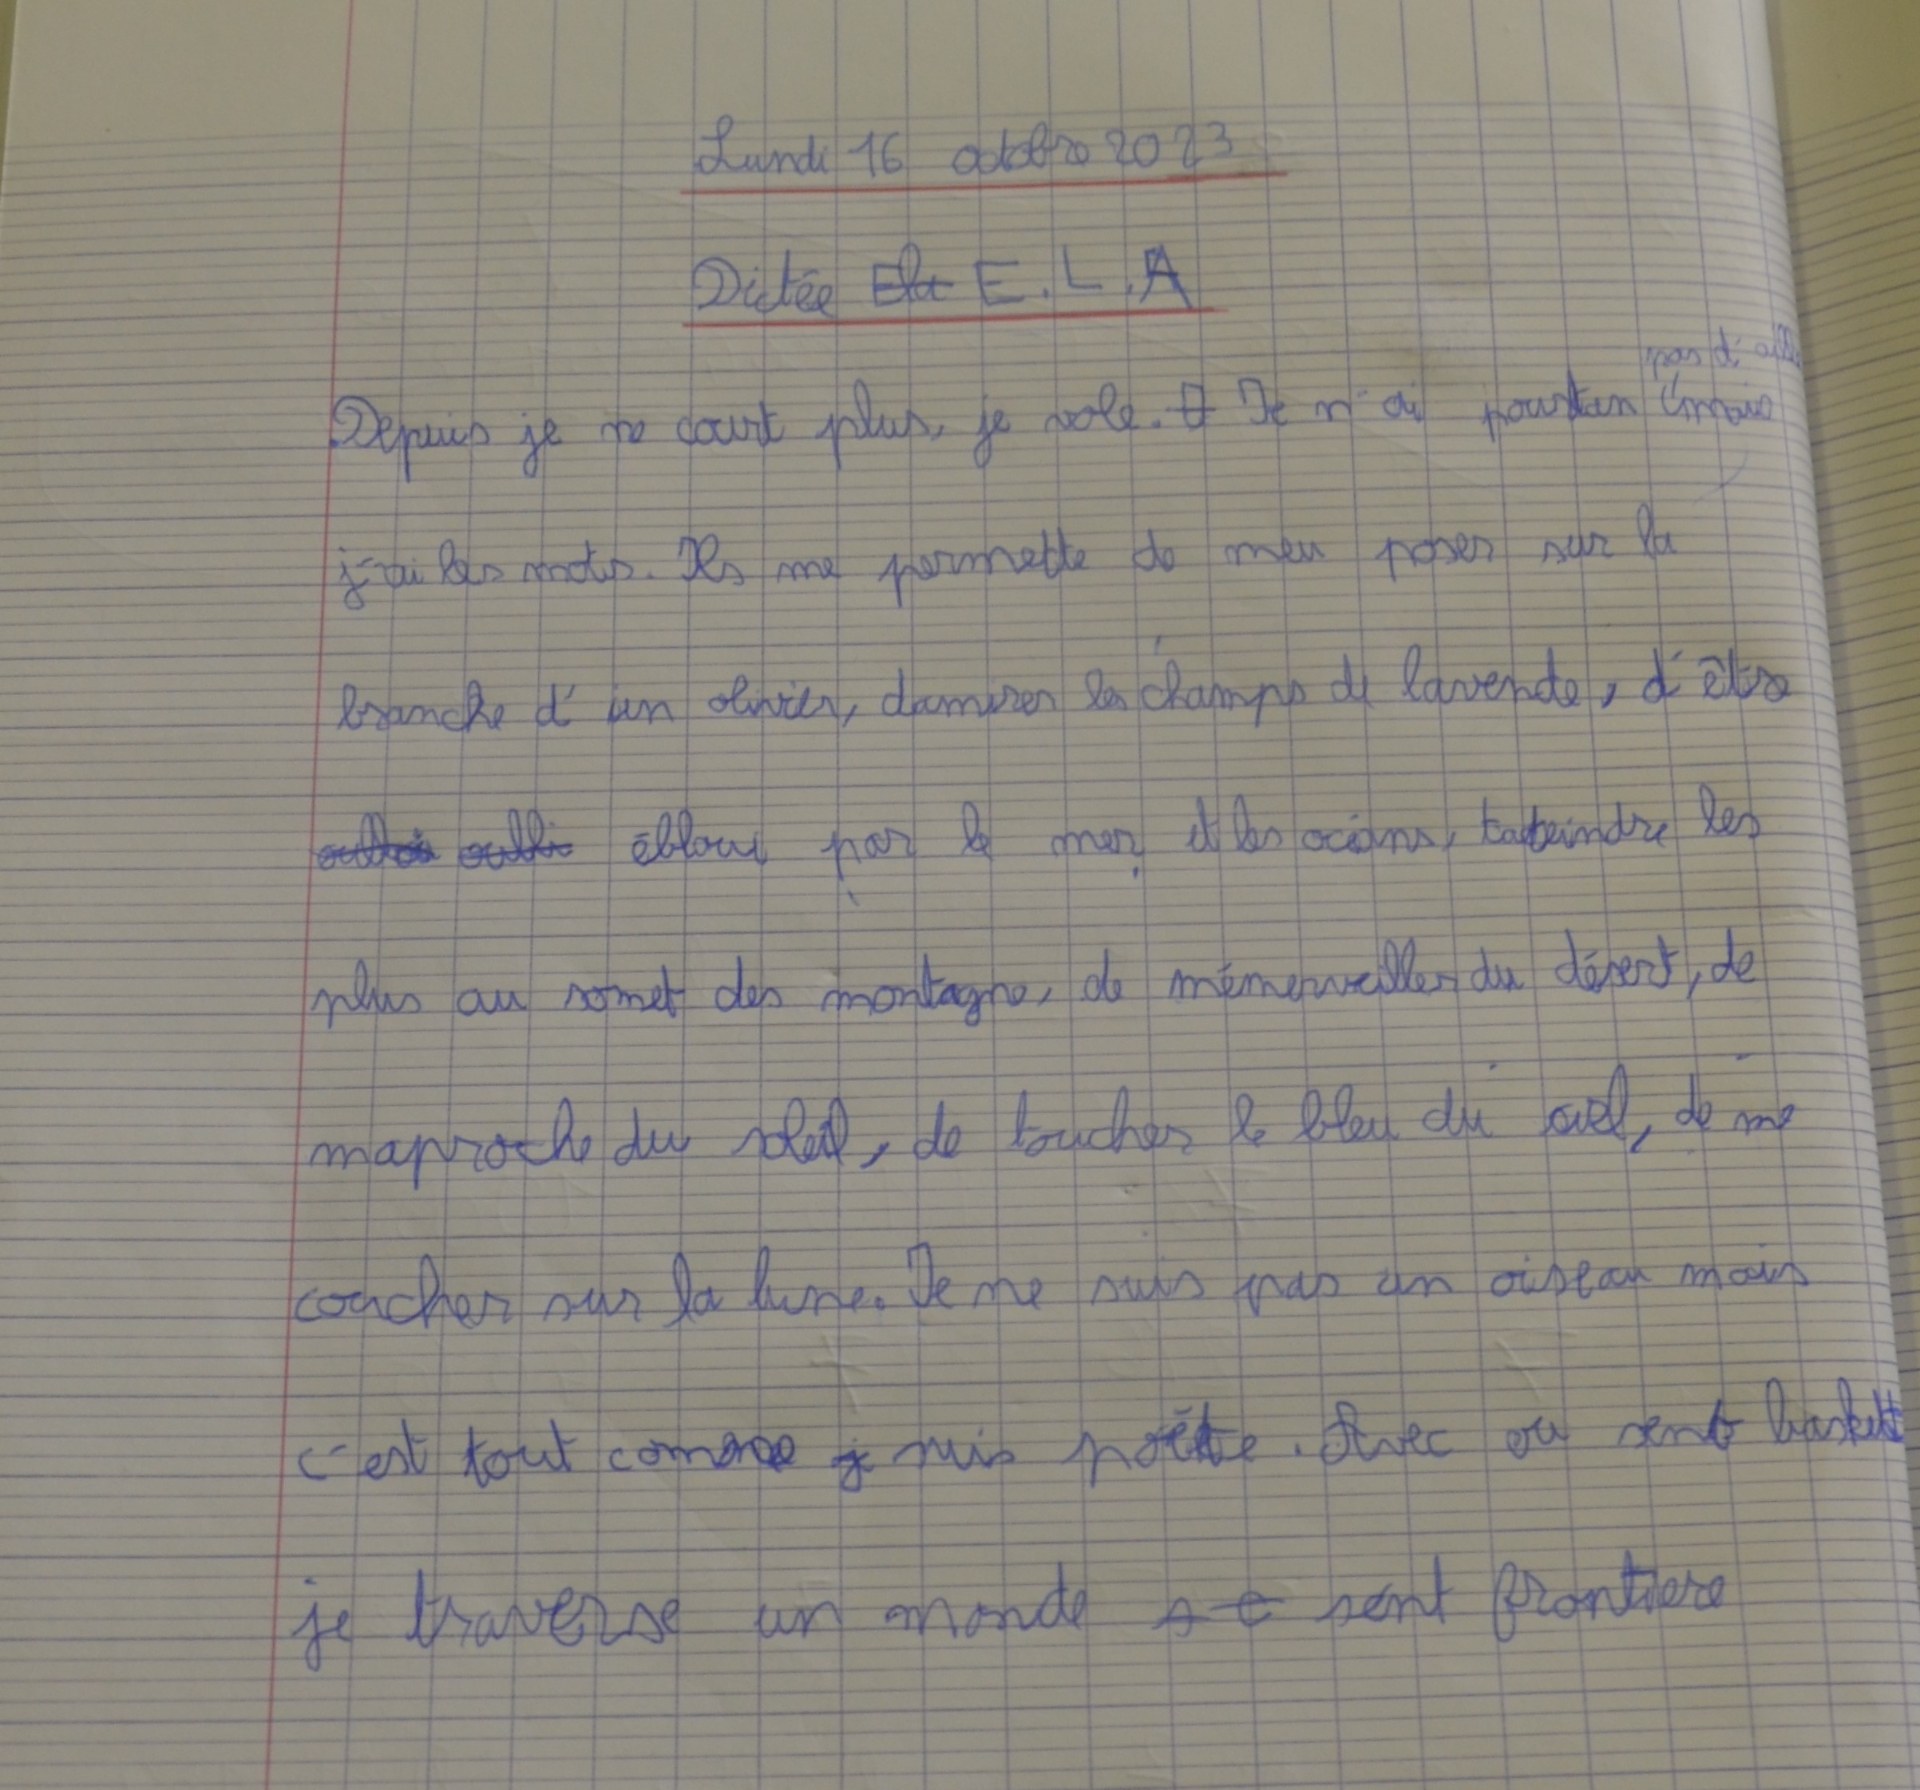 Lundi 16 octobre 2023
Dictée Ela E.L.A
pas d'aille
Depuis je ne court plus, je vole. Je n'ai pourtan mais
j'ai les mots. Ils me permette de meu poser sur la
branche d'un olivier, damirer les champs de lavende, d'être
ébloui par le mer et les océans, tateindre les
plus au somet des montagne, de mémerveiller du désert, de
maproche du soleil, de toucher le bleu du ciel, de me
coucher sur la lune. Je ne suis pas un oiseau mais
c'est tout comme je suis poête. Avec ou sent baskett
je traverse un monde sent frontiere